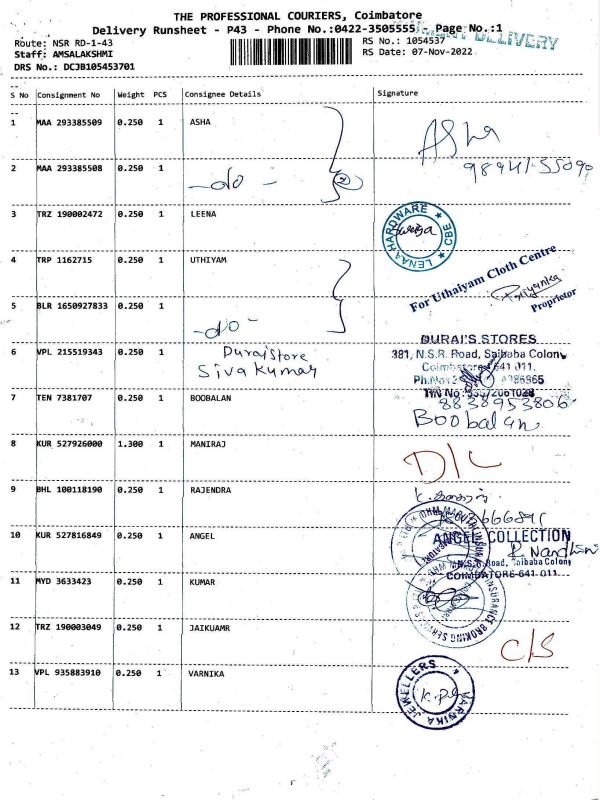 THE PROFESSIONAL COURIERS, Coimbatore
Delivery Runsheet - P43 - Phone No.:0422-3505555 - Page No.:1
DELIVERY
Route: NSR RD-1-43
RS No.: 1054537
Staff: AMSALAKSHMI
RS Date: 07-Nov-2022
DRS No.: DCJB105453701
S No Consignment No Weight PCS Consignee Details Signature
1 MAA 293385509 0.250 1 ASHA
Asha
2 MAA 293385508 0.250 1 -do- 2
3 TRZ 190002472 0.250 1 LEENA
LENAA HARDWARE ★ CBE ★
4 TRP 1162715 0.250 1 UTHIYAM
For Uthaiyam Cloth Centre
Priyanka
Proprietor
5 BLR 1650927833 0.250 1
-do-
6 VPL 215519343 0.250 1 Durai Store
Sivakumar
DURAI'S STORES
381, N.S.R. Road, Saibaba Colony
Coimbatore-641 011.
7 TEN 7381707 0.250 1 BOOBALAN
8838953806
Boobalan
8 KUR 527926000 1.300 1 MANIRAJ
D/L
9 BHL 100118190 0.250 1 RAJENDRA
10 KUR 527816849 0.250 1 ANGEL
ANGEL COLLECTION
N.S.R. Road, Saibaba Colony
COIMBATORE-641 011
11 MYD 3633423 0.250 1 KUMAR
12 TRZ 190003049 0.250 1 JAIKUAMR
C/S
13 VPL 935883910 0.250 1 VARNIKA
VARNIKA JEWELLERS